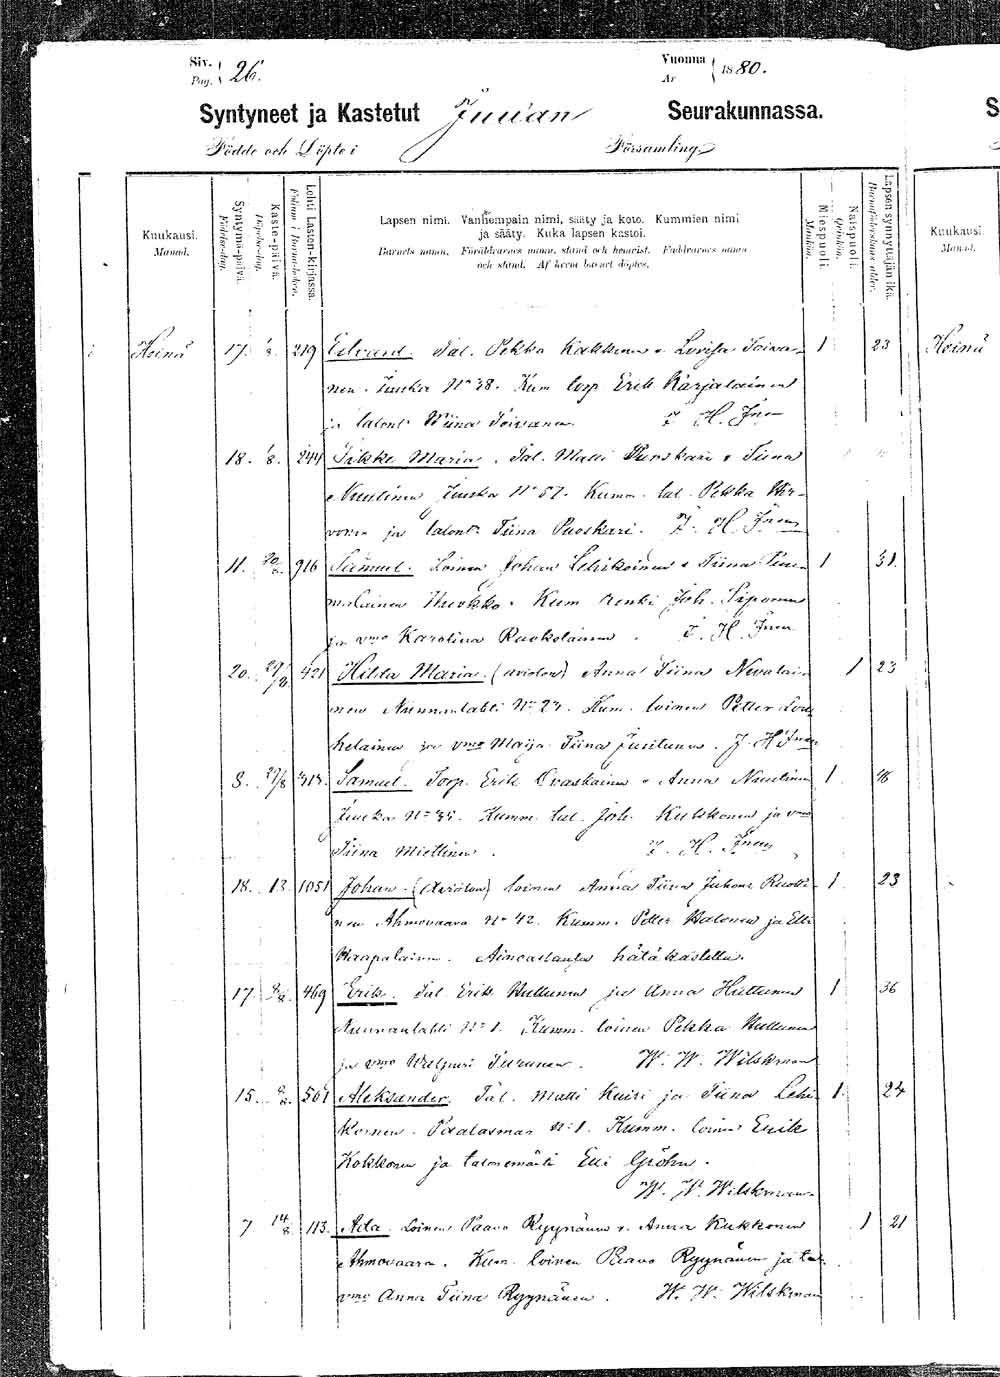 Siv. Vuonna
Pag. 26. Ar 1880.
Syntyneet ja Kastetut Juuan Seurakunnassa. S
Födde och Döpte i Församling
Kuukausi. Manad.
Syntymä-päivä. Födelse-dag.
Kaste-päivä. Döpelse-dag.
Lehti Lasten-kirjassa. Folium i Barna-boken.
Lapsen nimi. Vanhempain nimi, sääty ja koto. Kummien nimi
ja sääty. Kuka lapsen kastoi.
Barnets namn. Föräldrarnes namn, stand och hemvist. Faddrarnes namn
och stand. Af hvem barnet döptes.
Miespuoli. Mankön.
Naispuoli. Qvinkön.
Lapsen synnyttäjän ikä. Barnaföderskans ålder.
Kuukausi. Manad.
Heinä 17. 1/8. 219 Edvard. Tal. Pekka Kakkonen & Lovisa Toiva- 1 23 Heinä
nen. Juuka No 38. Kum torp Erik Karjalainen
ja talont Wiina Toivanen. J H. Jnen
18. 1/8. 244 Maria. Tal. Matti & Tiina
Nuutinen Juuka No 57. Kumm. tal. Pekka Hir-
vonen ja talont Tiina Puoskari. J. H. Jnen
11. 916 Samuel. Loinen Johan Lehikoinen & Tiina 1 31.
malainen. Kum renki Joh. Siponen
ja vmo Karolina Ruokolainen. J. H. Jnen
20. 421 Hilda Maria. (avioton) Anna Tiina Nevalai- 1 23
nen Nunnanlahti No 27. Kum. loinen Petter
kelainen ja vmo Maija Tiina Juutinen. J. H Jnen
8. 27/8 Samuel. Torp. Erik Ovaskainen & Anna Nuutinen 1
Juuka No. Kumm. tal. Joh. ja vmo
Tiina Miettinen. J. H. Jnen
18. 13 1051 Johan. (Avioton) loinen Anna Tiina Juhont. Ruotti- 1. 23
nen Ahmovaara No 42. Kumm. Petter Halonen ja Elli
Haapalainen. hätäkastettu.
17. 469 Erik. Tal Erik Huttunen ja Anna Huttunen 1 36
Nunnanlahti No 1. Kumm. loinen Pekka Huttunen
ja vmo Walpuri Turunen. W. W. Wilskman
15. 501 Aleksander. Tal. Matti Kuisi ja Tiina Lehi- 1. 24
koinen. Paalasmaa No 1. Kumm. loinen Erik
Kokkonen ja talonemäntä Elli Gröhn.
W. W. Wilskman
7 14/8. 113. Ada. Loinen Paavo Ryynänen & Anna Kukkonen 1 21
Ahmovaara. Kum. loinen Paavo Ryynänen ja
vmo Anna Tiina Ryynänen. W. W. Wilskman